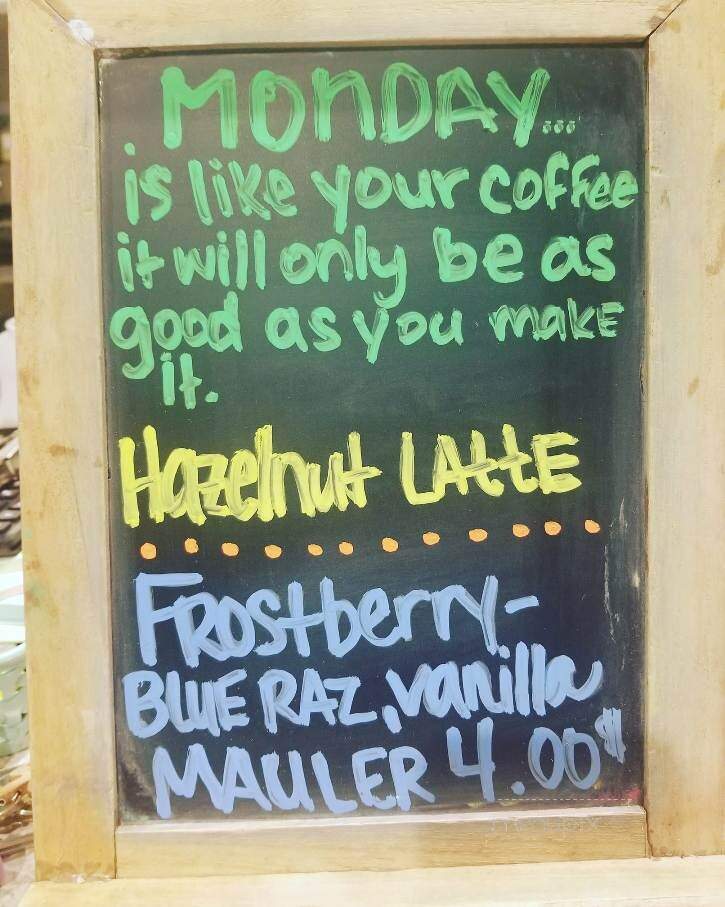 MONDAY...
is like your coffee
it will only be as
good as you make
it.
Hazelnut LAttE
FROStberry-
BLUE RAZ, vanilla
MAULER 4.00$